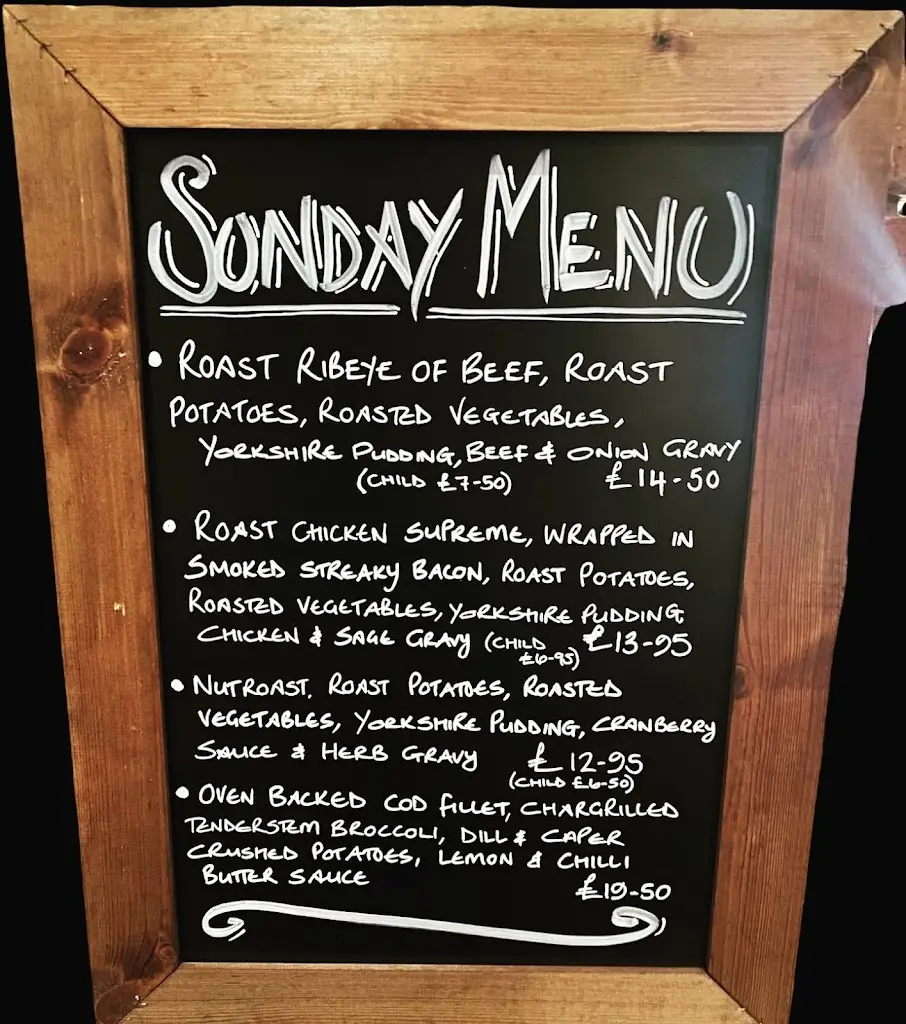 SUNDAY MENU
• ROAST RIBEYE OF BEEF, ROAST
POTATOES, ROASTED VEGETABLES,
YORKSHIRE PUDDING, BEEF & ONION GRAVY
(CHILD £7-50) £14-50
• ROAST CHICKEN SUPREME, WRAPPED IN
SMOKED STREAKY BACON, ROAST POTATOES,
ROASTED VEGETABLES, YORKSHIRE PUDDING,
CHICKEN & SAGE GRAVY (CHILD £13-95
£6-95)
• NUTROAST, ROAST POTATOES, ROASTED
VEGETABLES, YORKSHIRE PUDDING, CRANBERRY
SAUCE & HERB GRAVY £12-95
(CHILD £6-50)
• OVEN BACKED COD FILLET, CHARGRILLED
TENDERSTEM BROCCOLI, DILL & CAPER
CRUSHED POTATOES, LEMON & CHILLI
BUTTER SAUCE
£19-50